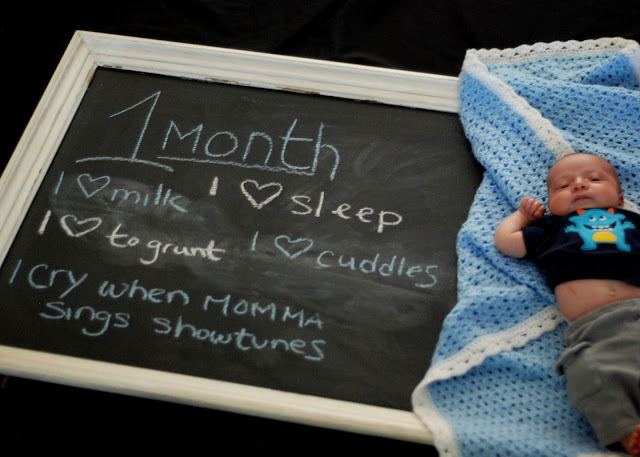 1 Month
I ♡ milk I ♡ sleep
I ♡ to grunt I ♡ cuddles
I cry when MOMMA
sings showtunes